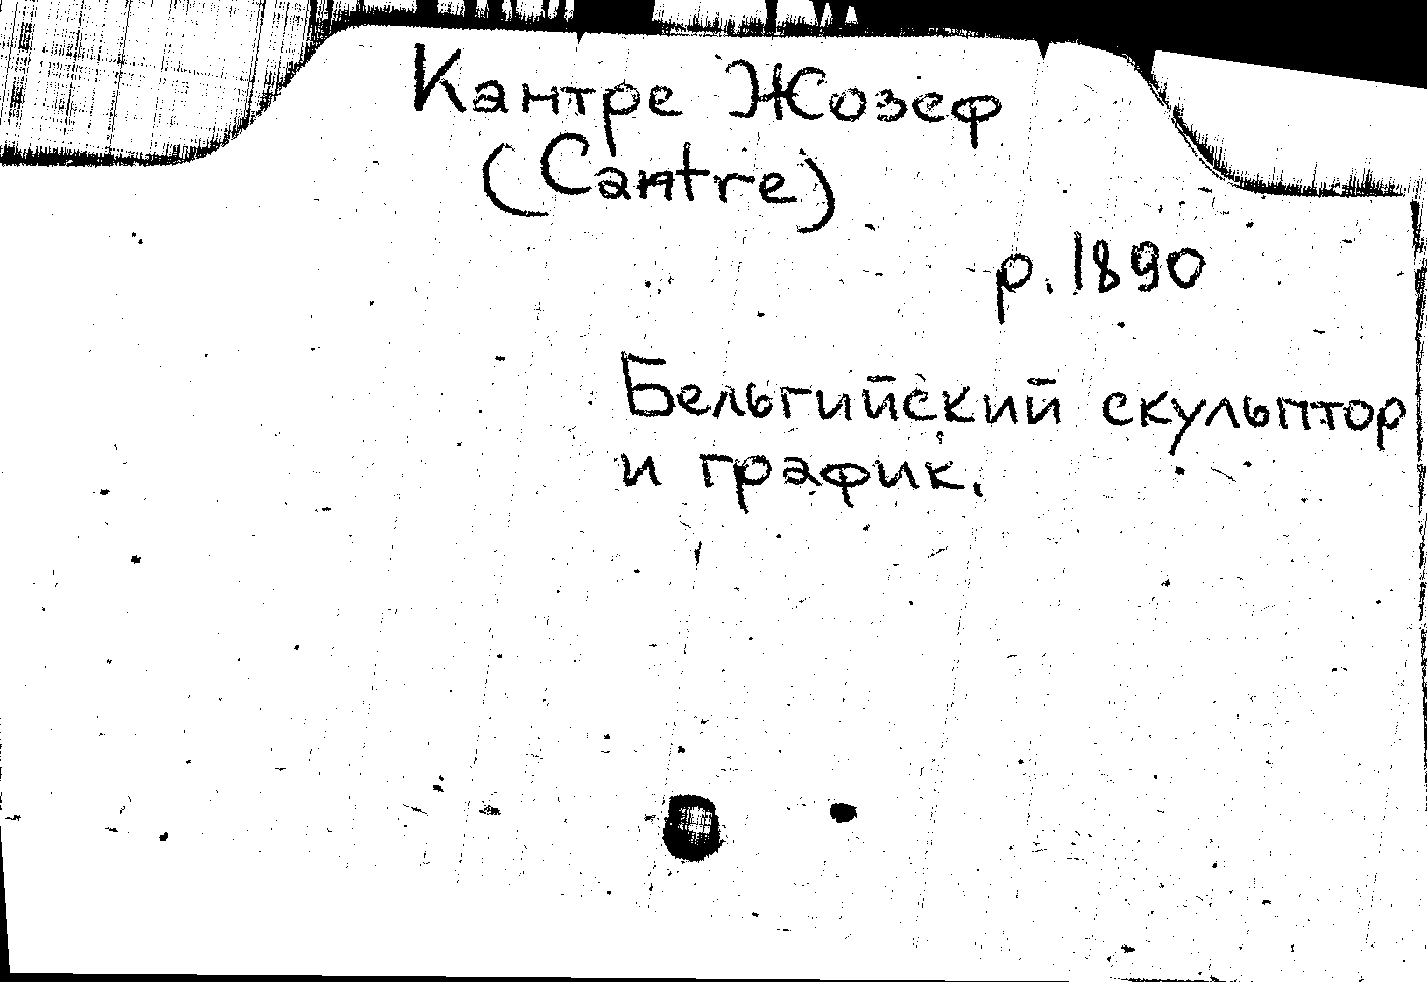 Кантре Жозеф
(Cantre)
р. 1890
Бельгийский скульптор
и график.